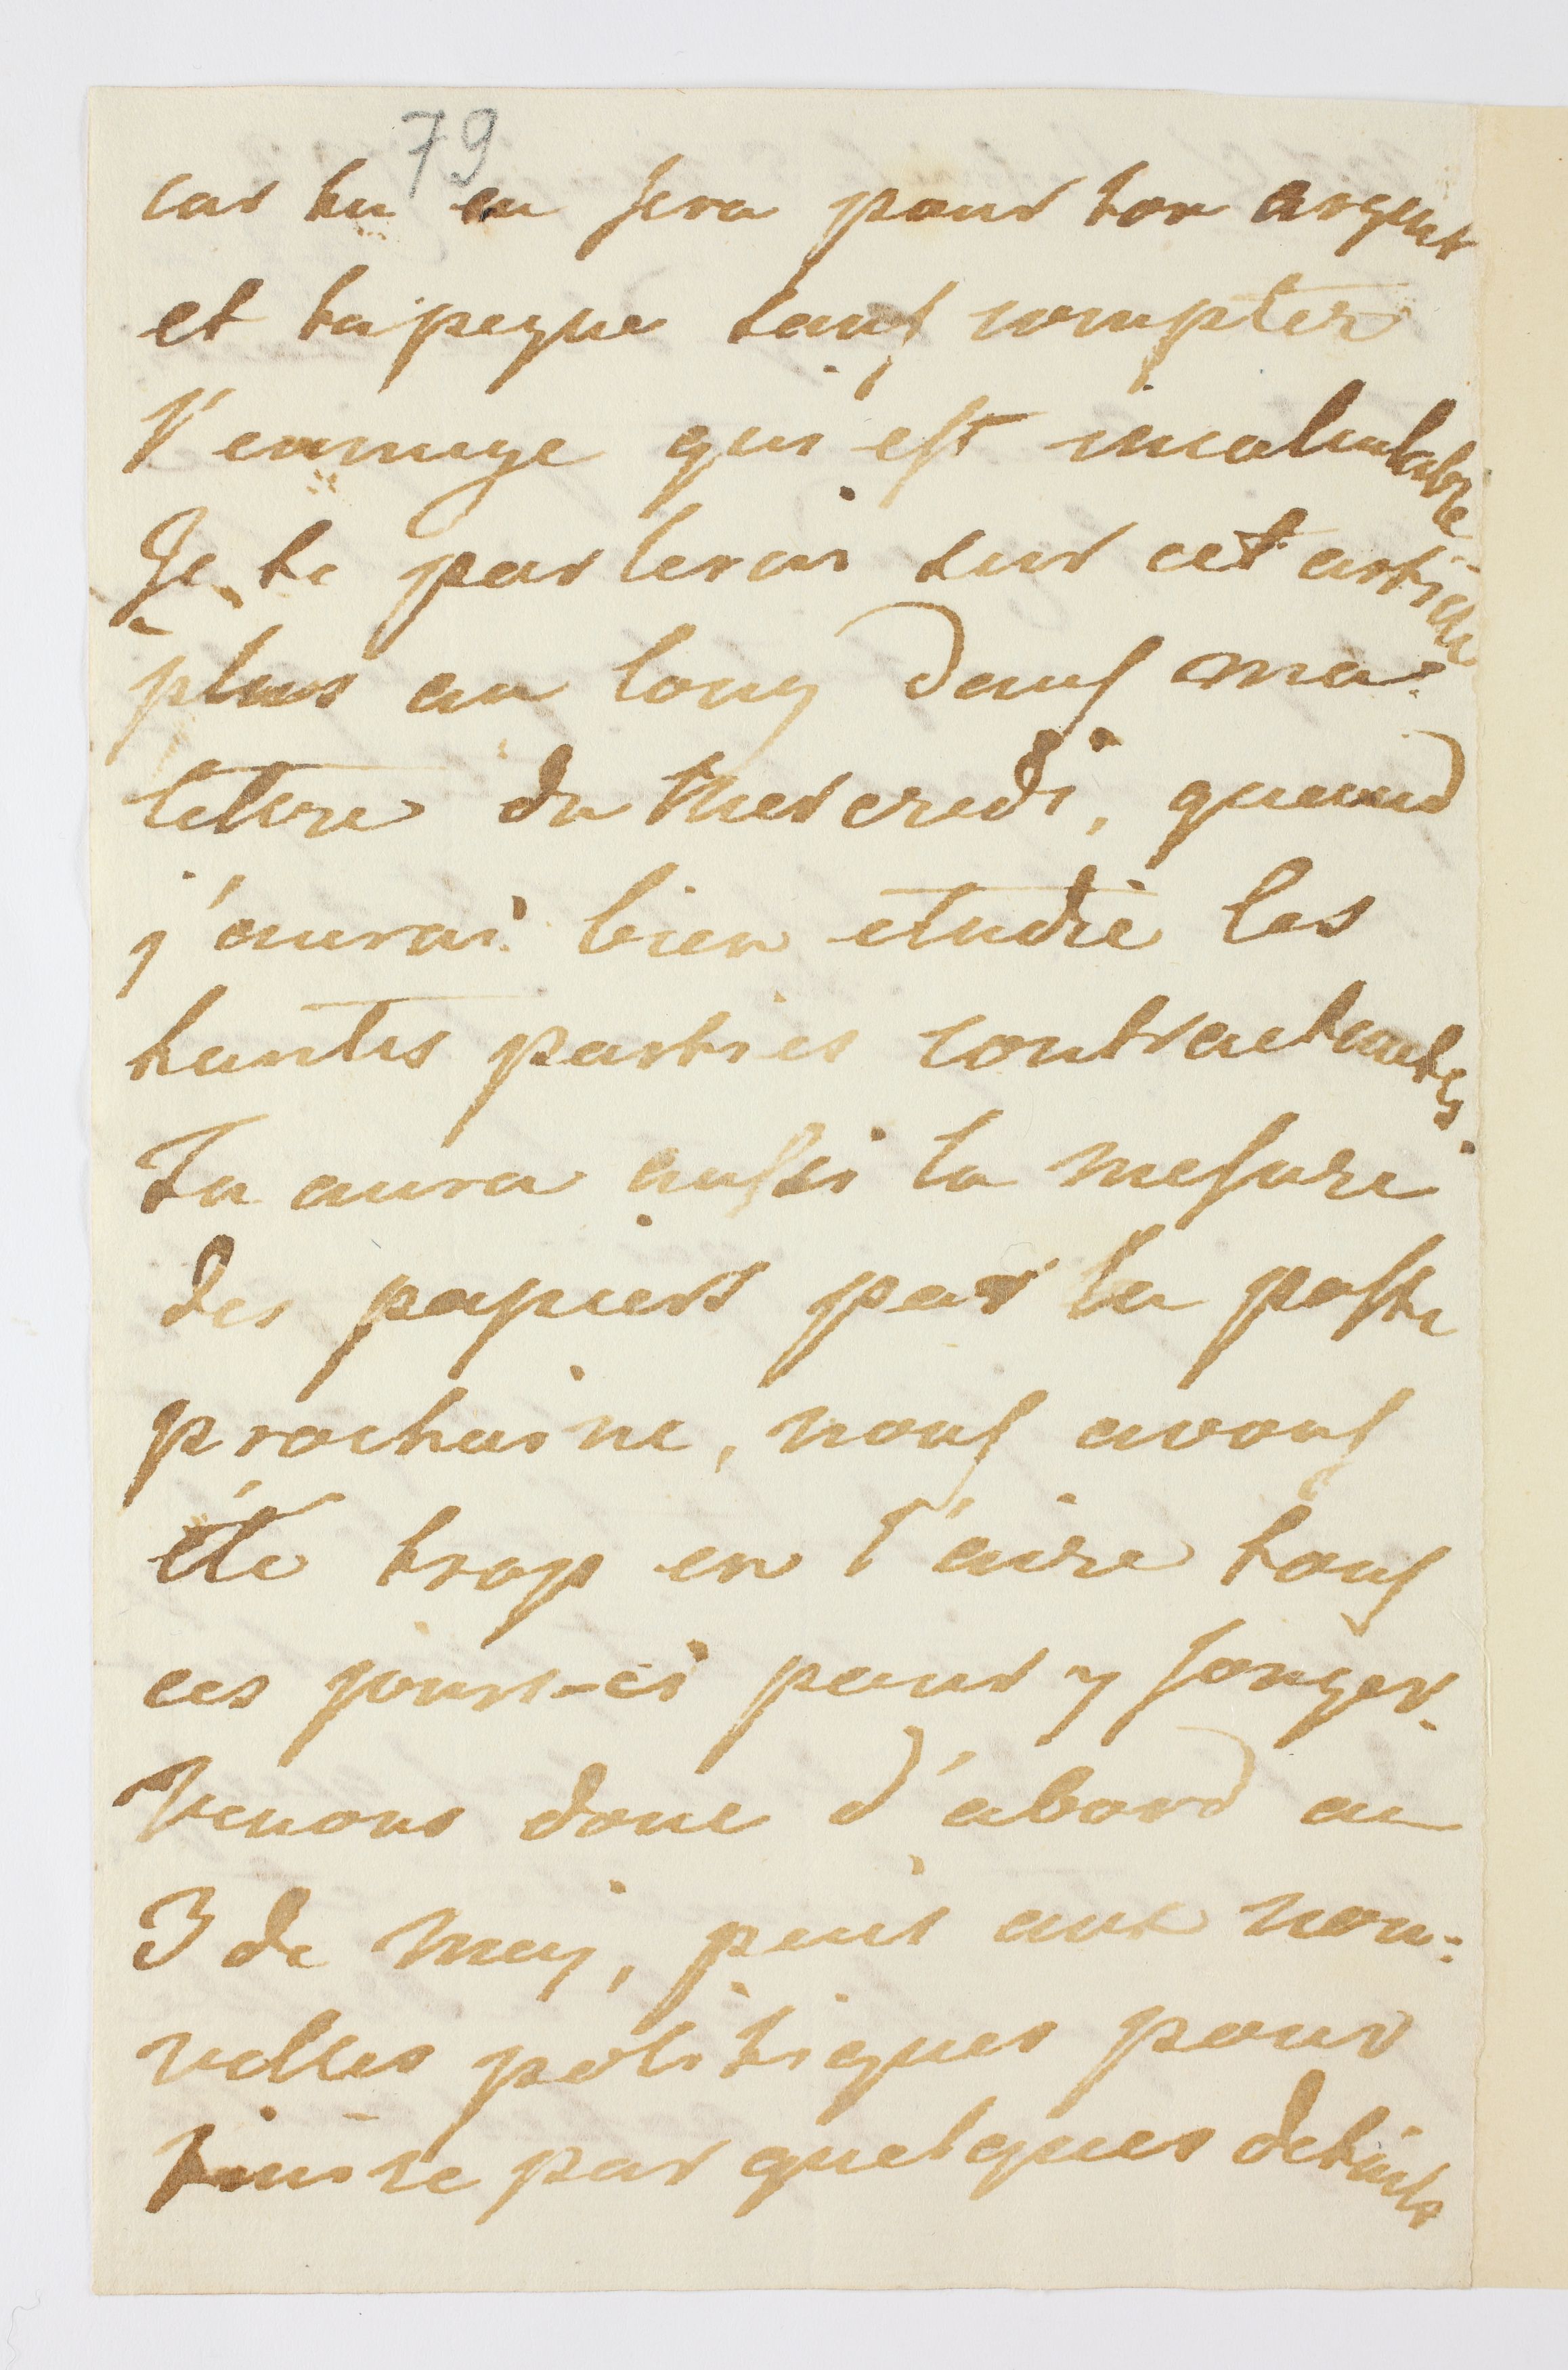 79
car tu en sera pour ton argent
et ta peyne sans compter
l'ennuye qui est incalculable
Je te parlerai sur cet article
plus au long dans ma
lettre du Mercredi, quand
j'aurai bien etudié les
hautes parties contractantes.
Tu aura aussi la mesure
des papiers par la poste
prochaine, nous avons
été trop en l'aire tous
ces jours-ci pour y songer.
Venons donc d'abord au
3 de May, puis aux nou:
velles politiques pour
finire par quelques details